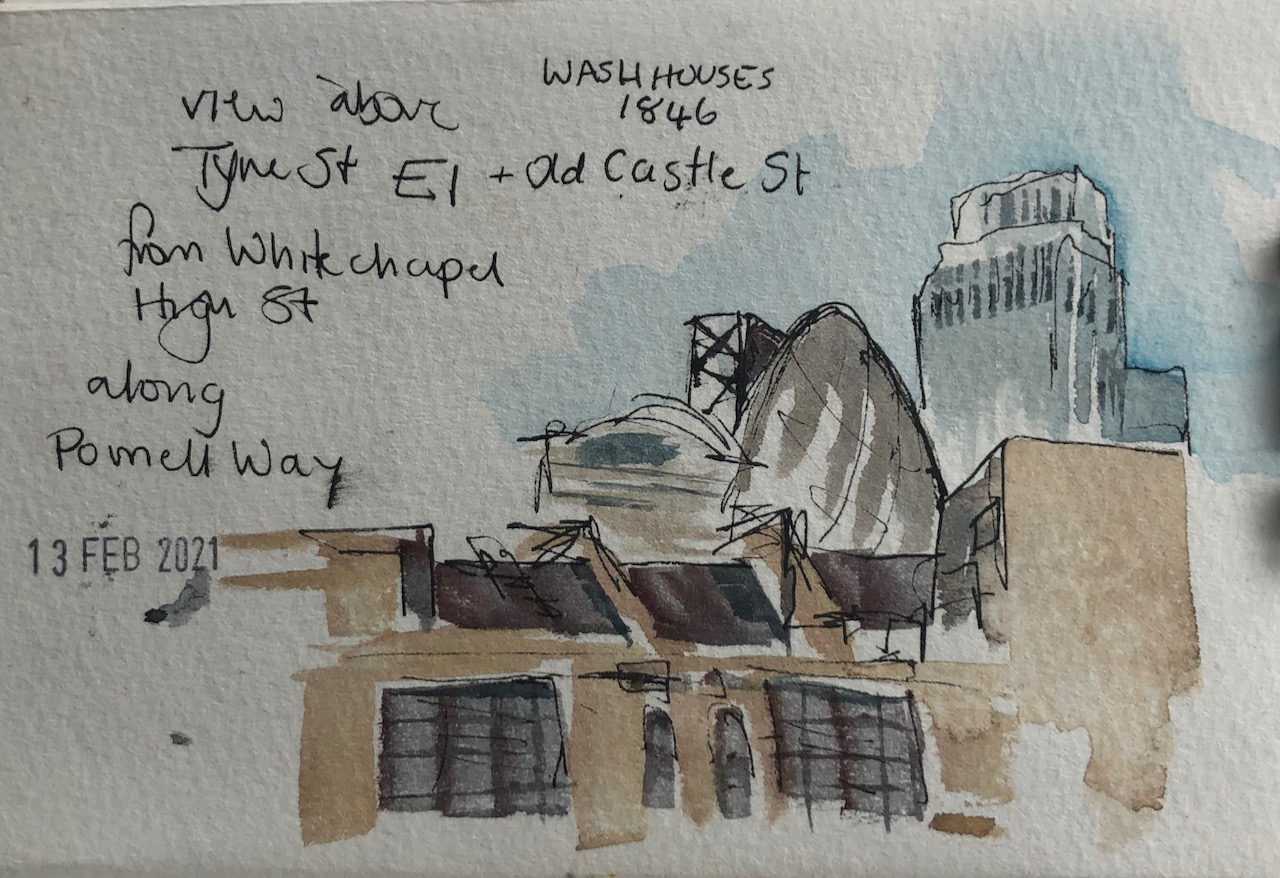 WASHHOUSES
1846
view above
Tyne St E1 + Old Castle St
from Whitechapel
High St
along
Pomell Way
13 FEB 2021